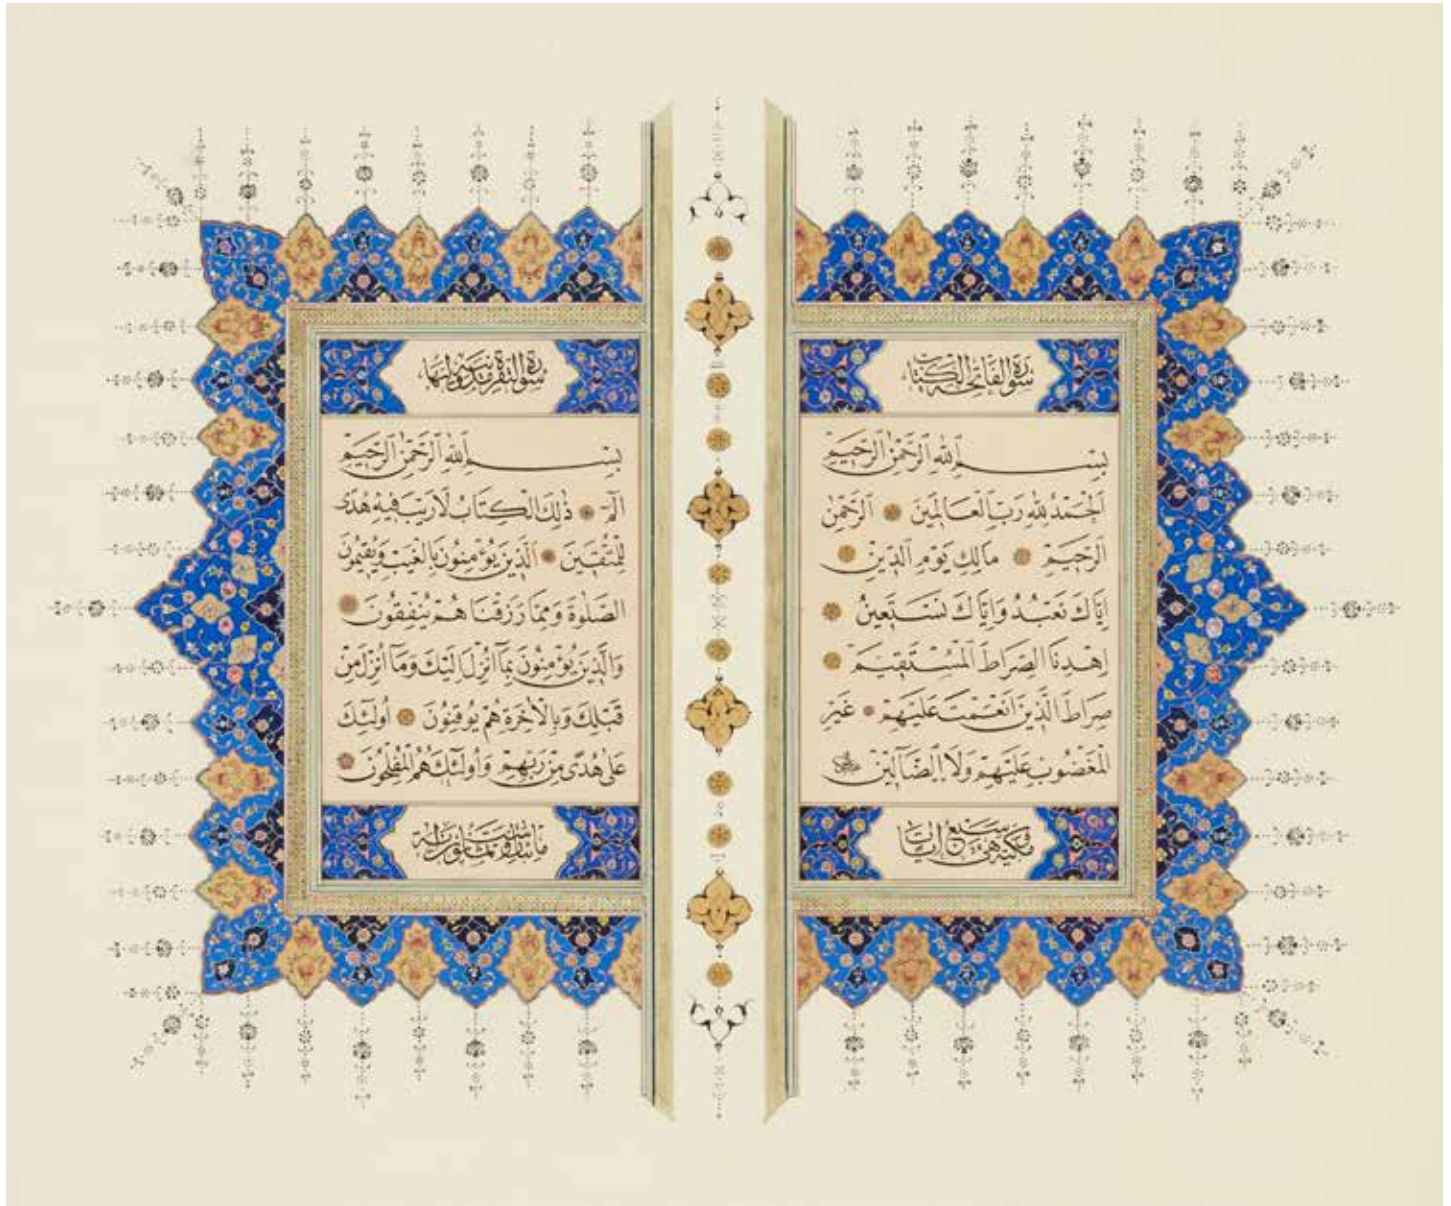 سورة الفاتحة الكتاب
بسم الله الرحمن الرحيم
الحمد لله رب العالمين الرحمن
الرحيم مالك يوم الدين
اياك نعبد واياك نستعين
اهدنا الصراط المستقيم
صراط الذين انعمت عليهم غير
المغضوب عليهم ولا الضالين
مكية هي سبع آيات
سورة البقرة مدنية
بسم الله الرحمن الرحيم
الم ذلك الكتاب لا ريب فيه هدى
للمتقين الذين يؤمنون بالغيب ويقيمون
الصلوة ومما رزقناهم ينفقون
والذين يؤمنون بما انزل اليك وما انزل من
قبلك وبالاخرة هم يوقنون اولئك
على هدى من ربهم واولئك هم المفلحون
مائتان وست وثمانون آية